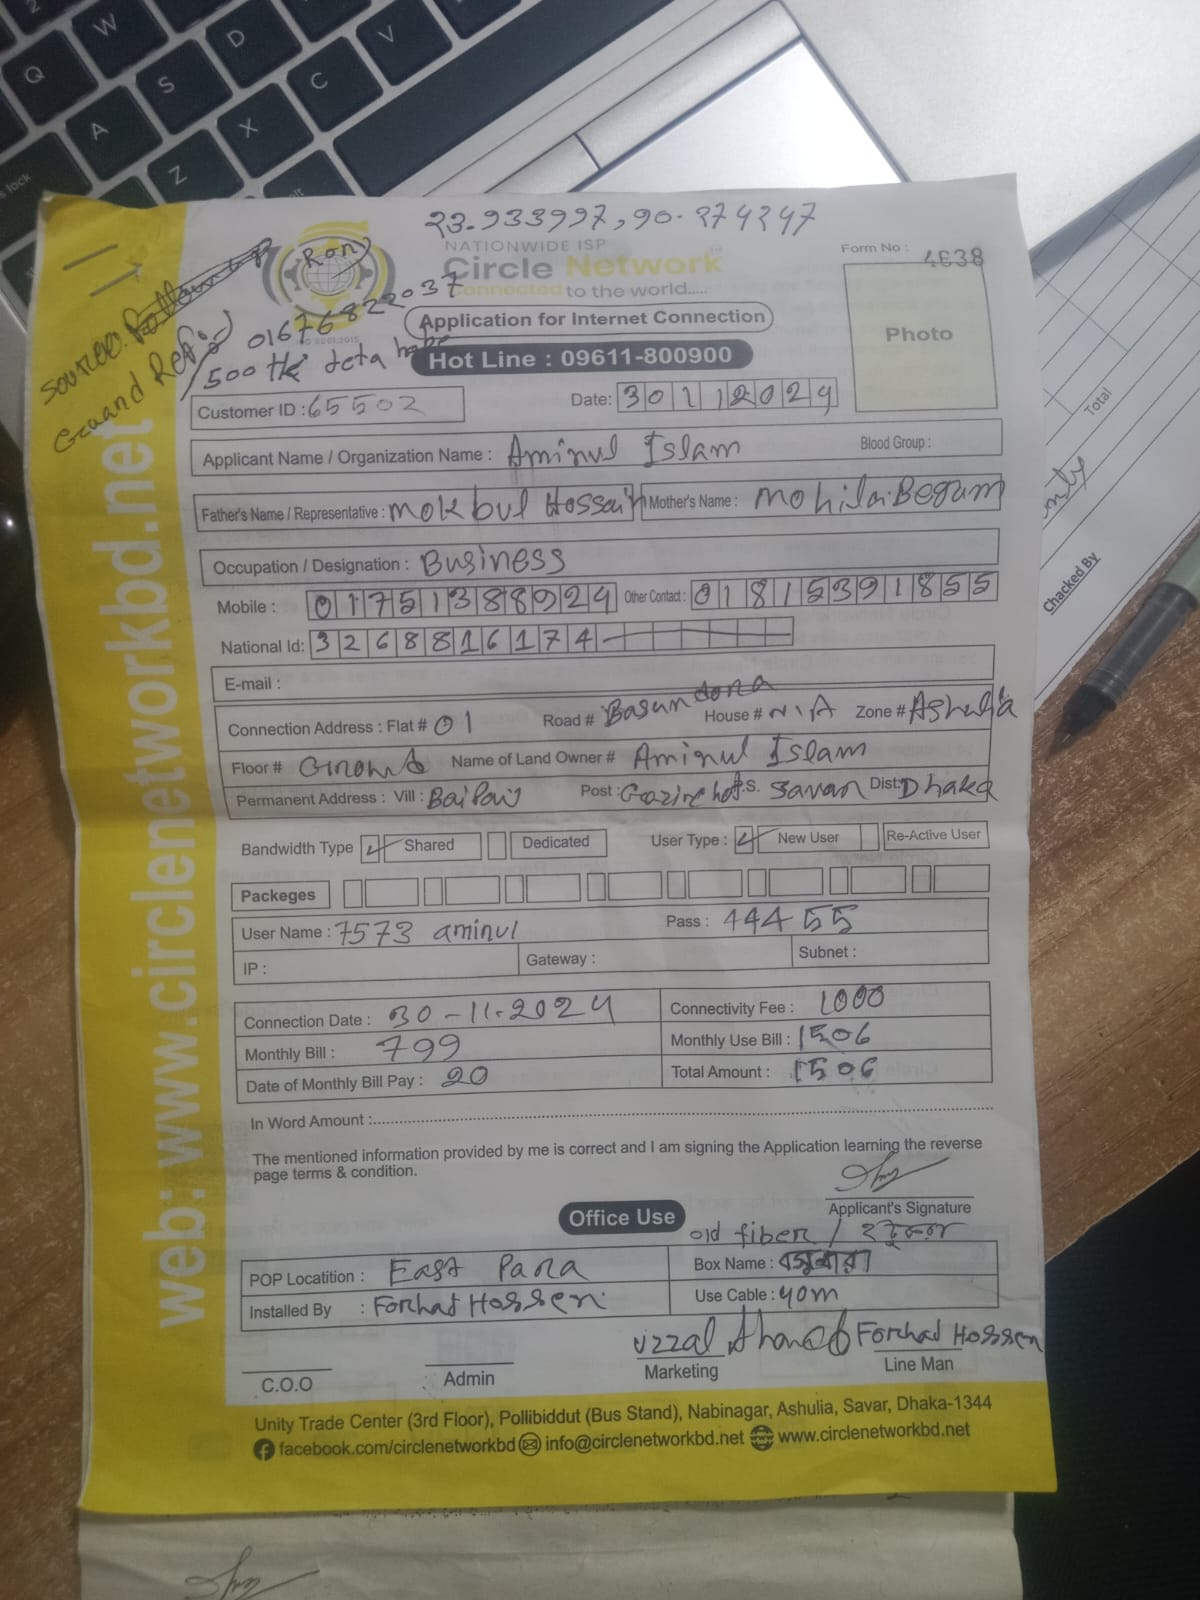 23.933997, 90.274247
NATIONWIDE ISP
Circle Network
Connected to the world.....
Form No : 4638
Photo
Source:
Rony
01676822037
1500 tk
Application for Internet Connection
Hot Line : 09611-800900
Customer ID : 65502
Date: 30112024
Applicant Name / Organization Name : Aminul Islam Blood Group :
Father's Name / Representative : Mokbul Hossain Mother's Name : Mohila Begum
Occupation / Designation : Business
Mobile : 01751388924 Other Contact : 01815391855
National Id: 3268816174
E-mail :
Connection Address : Flat # 01 Road # Basundara House # N/A Zone # Ashulia
Floor # Ground Name of Land Owner # Aminul Islam
Permanent Address : Vill : Baipail Post : Gazirchat P.S. Savar Dist: Dhaka
Bandwidth Type Shared Dedicated User Type : New User Re-Active User
Packeges
User Name : 7573 aminul Pass : 44455
IP : Gateway : Subnet :
Connection Date : 30-11-2024 Connectivity Fee : 1000
Monthly Bill : 799 Monthly Use Bill : 1506
Date of Monthly Bill Pay : 20 Total Amount : 1506
In Word Amount :
The mentioned information provided by me is correct and I am signing the Application learning the reverse
page terms & condition.
Applicant's Signature
Office Use
old fiber /
POP Locatition : East Para Box Name : বসুন্ধরা
Installed By : Forhad Hossen Use Cable : 40m
Uzzal Ahamed Forhad Hossen
C.O.O Admin Marketing Line Man
Unity Trade Center (3rd Floor), Pollibiddut (Bus Stand), Nabinagar, Ashulia, Savar, Dhaka-1344
facebook.com/circlenetworkbd info@circlenetworkbd.net www.circlenetworkbd.net
web: www.circlenetworkbd.net
Total
Chacked By
Q
W
A
S
D
Z
X
C
V